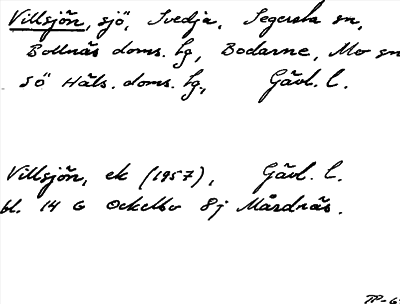 Villsjön, sjö, Svedja, Segersta sn,
Bollnäs doms. lg, Bodarne, Mo sn
Sö Häls. doms. lg, Gävl. l.
Villsjön, ek (1957), Gävl. l.
bl. 14 G Ockelbo 8j Mårdnäs.